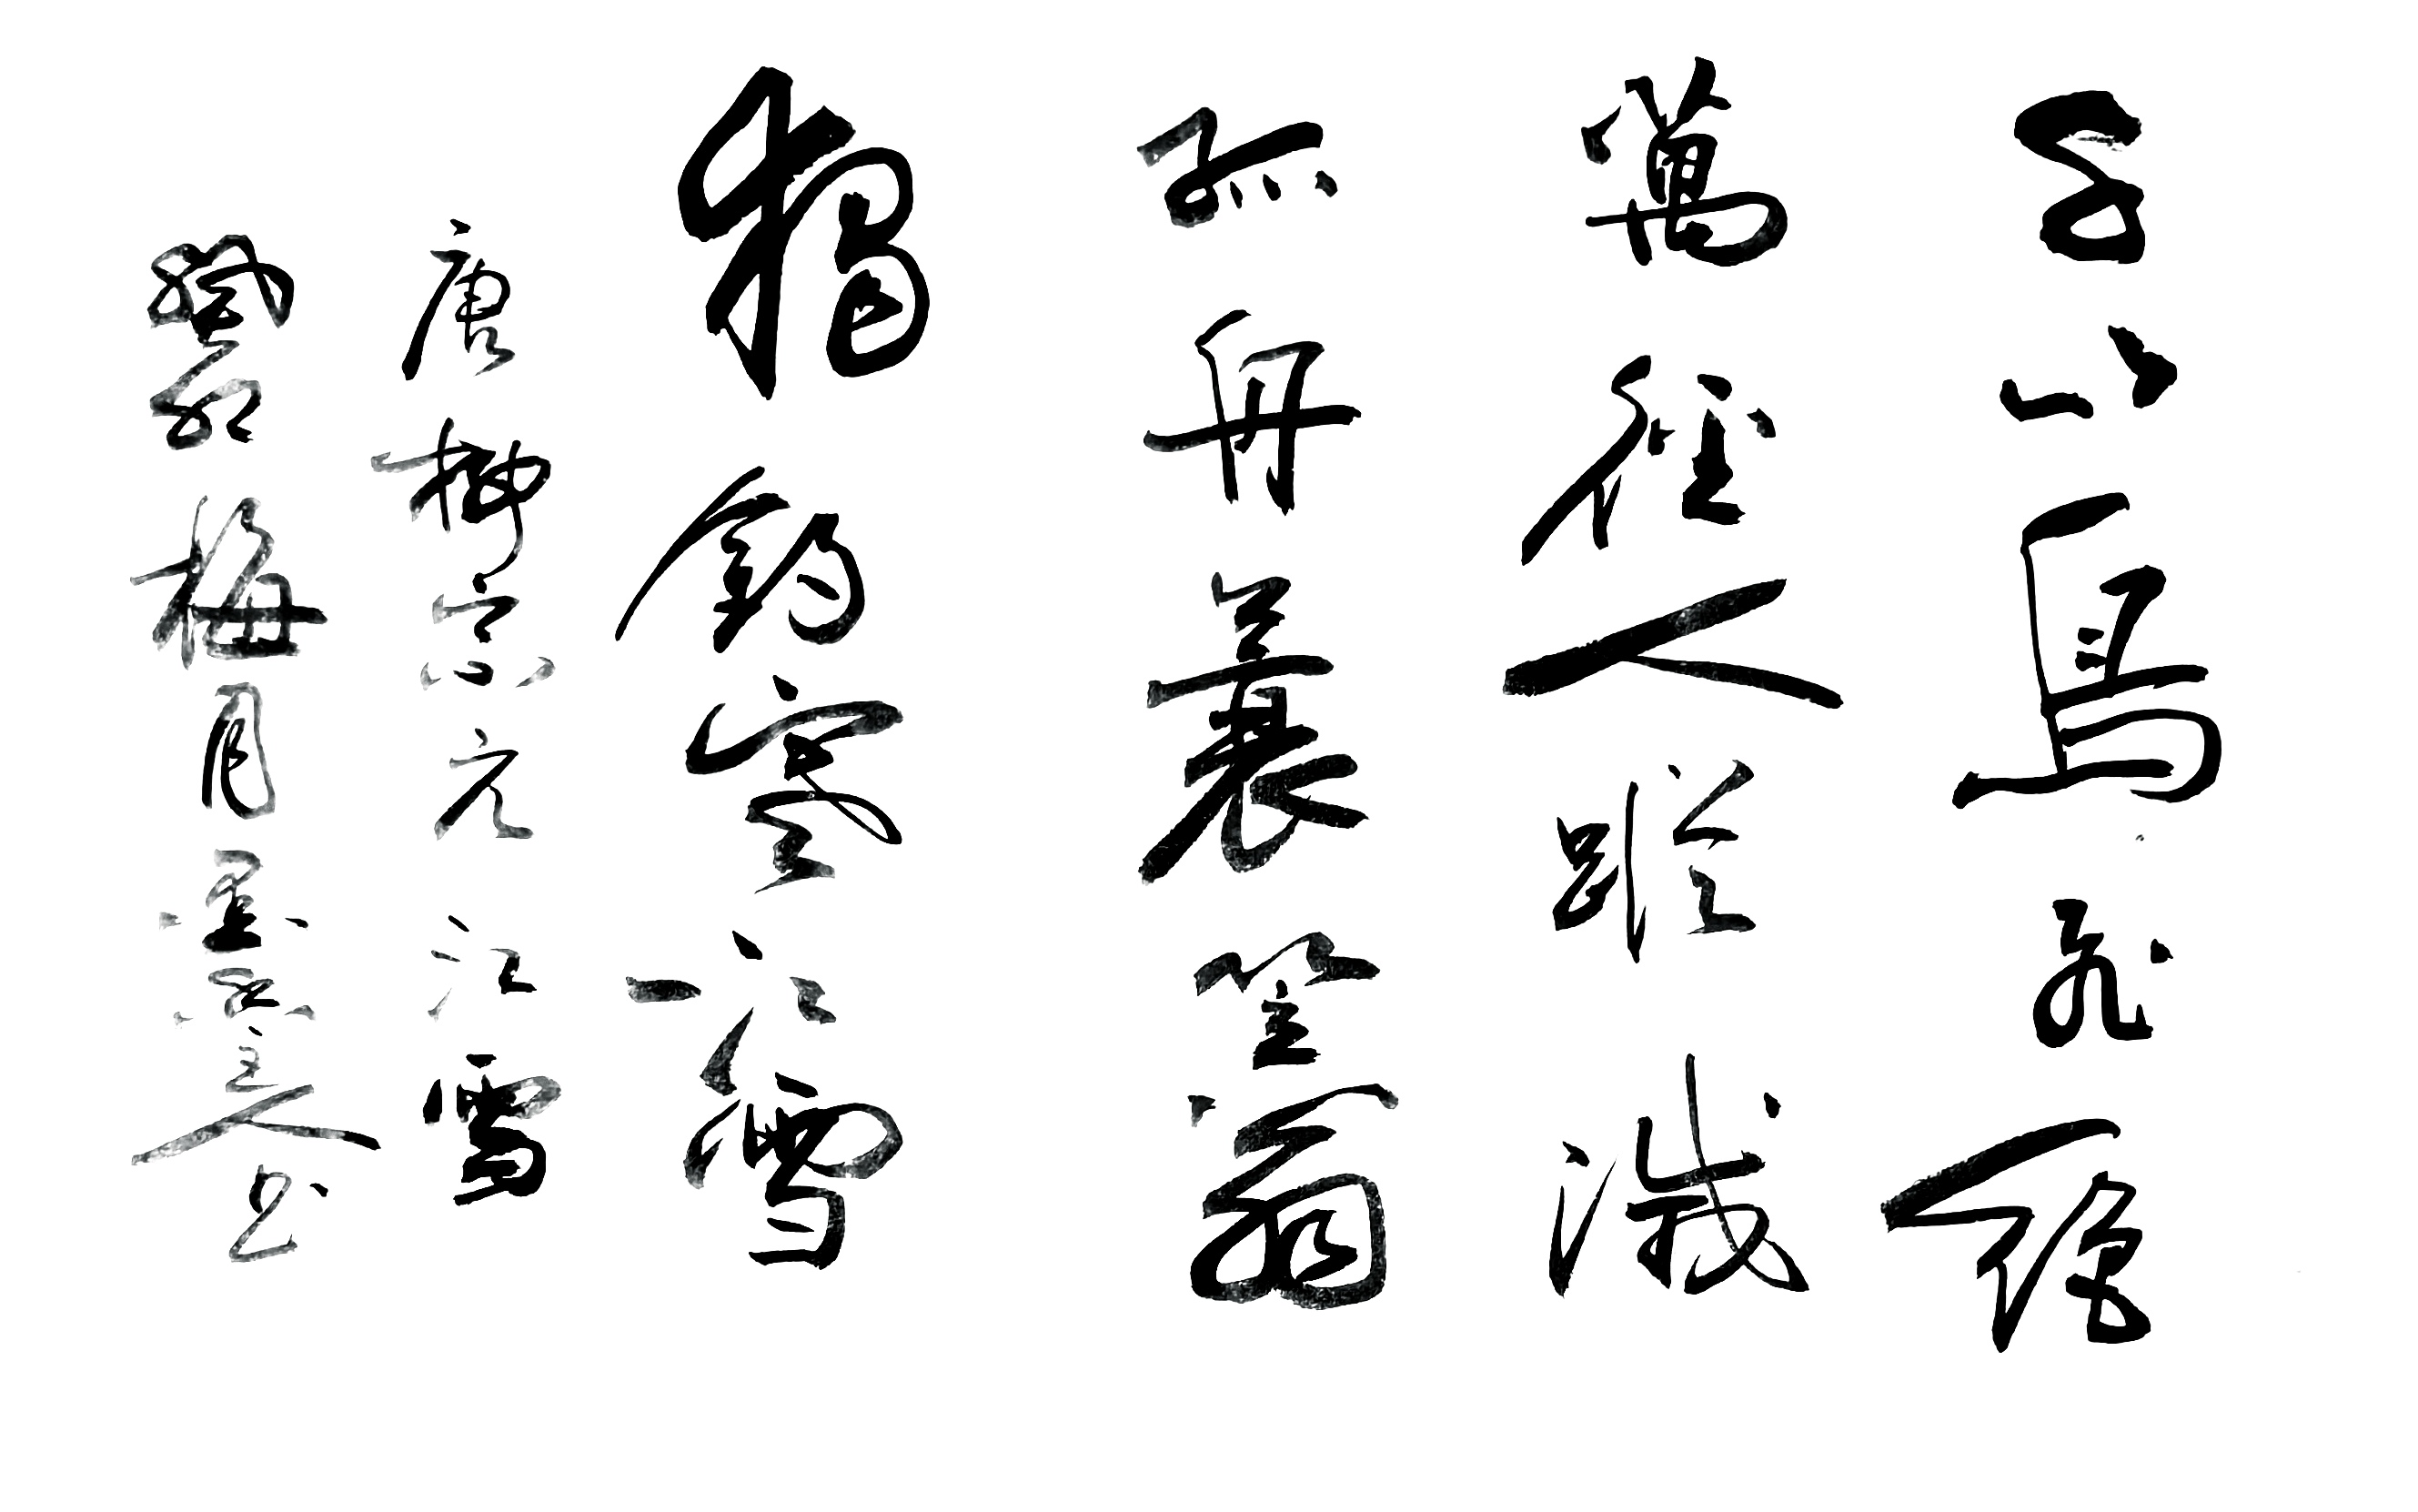 千山鳥飛絕
萬徑人蹤滅
孤舟蓑笠翁
獨釣寒江雪
唐柳宗元江雪
癸卯梅月墨主人书